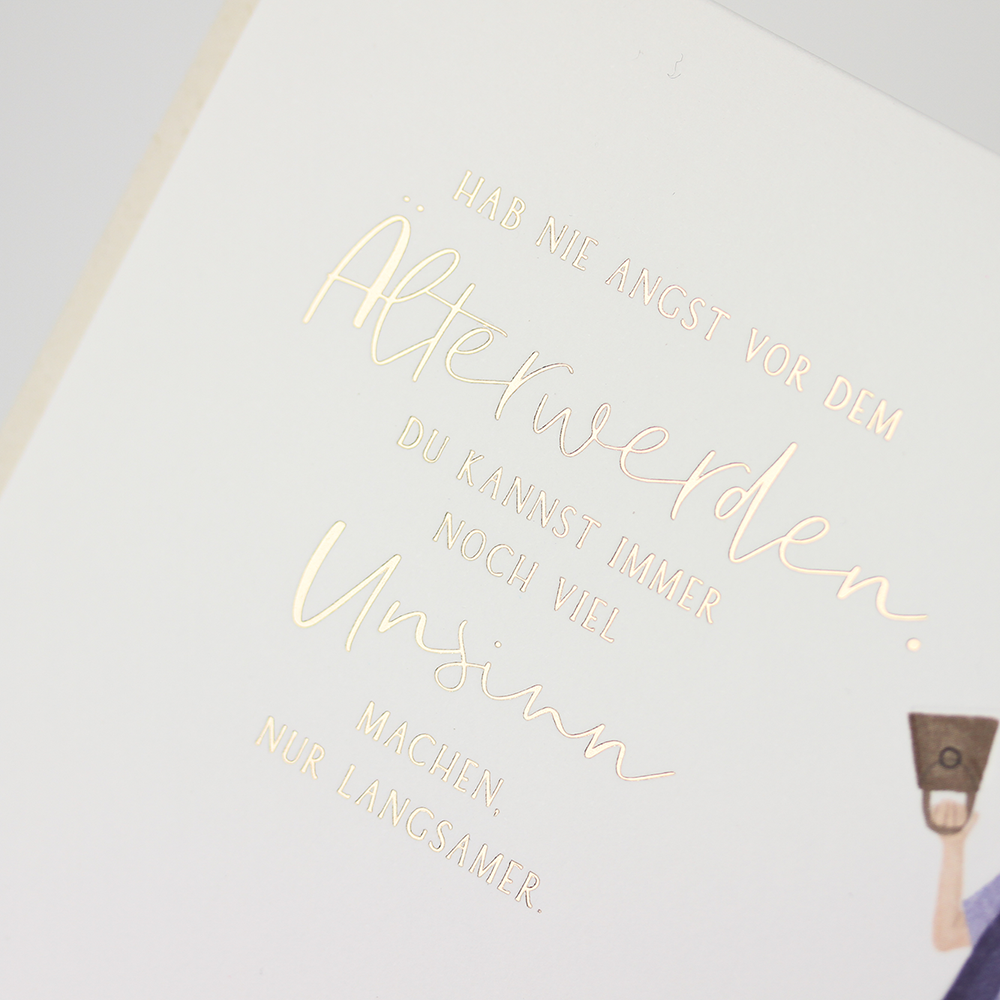 HAB NIE ANGST VOR DEM
Älterwerden.
DU KANNST IMMER
NOCH VIEL
Unsinn
MACHEN,
NUR LANGSAMER.